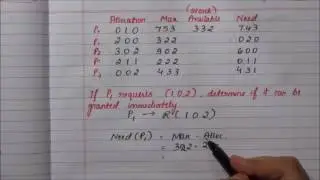 Allocation Max Available Need
(work)
P₀ 0 1 0 7 5 3 3 3 2 7 4 3
P₁ 2 0 0 3 2 2 0 2 0
P₂ 3 0 2 9 0 2 6 0 0
P₃ 2 1 1 2 2 2 0 1 1
P₄ 0 0 2 4 3 3 4 3 1
If P₁ requests (1, 0, 2), determine if it can be
granted immediately.
P₁ → R (1 0 2)
Need (P₁) = Max - Alloc.
= 3 2 2 - 2
=